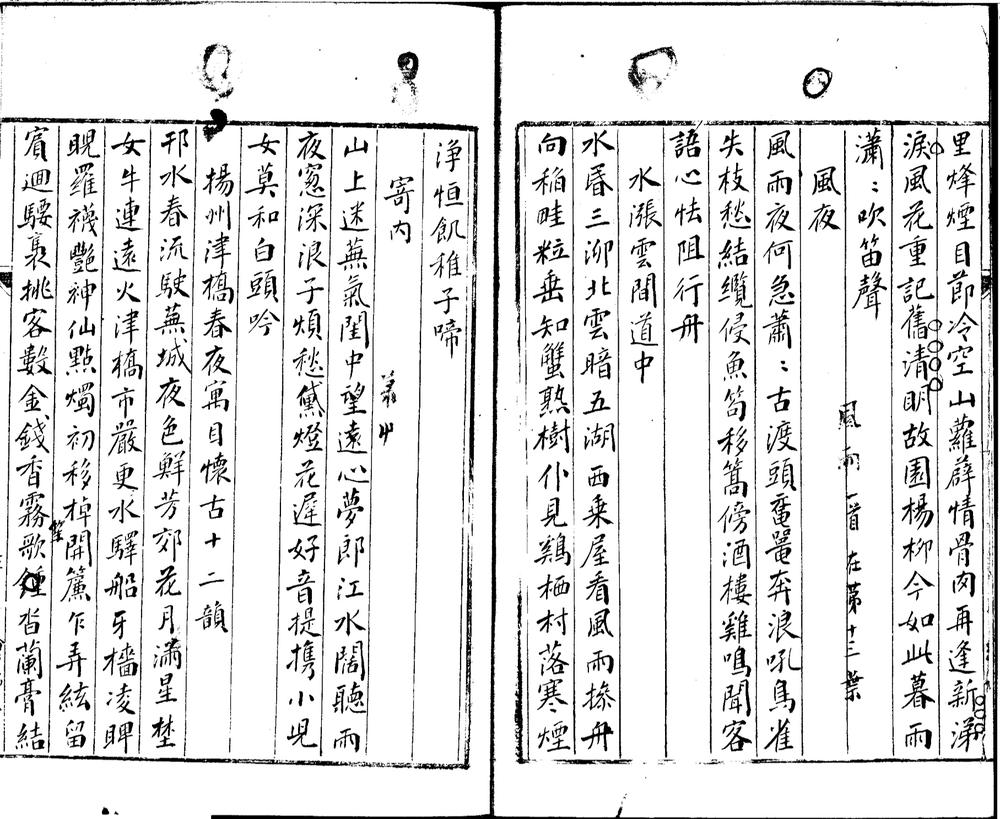 里烽煙目節冷空山蘿薜情骨肉再逢新涕
淚風花重記舊清明故園楊柳今如此暮雨
瀟〻吹笛聲
風夜
風雨一首在第十三葉
風雨夜何急蕭〻古渡頭黿鼉奔浪吼鳥雀
失枝愁結纜侵魚笱移篙傍酒樓雞鳴聞客
語心怯阻行舟
水漲雲間道中
水昏三泖北雲暗五湖西乗屋看風雨操舟
向稲畦粒垂知蟹熟樹仆見鷄栖村落寒煙
浄恒飢稚子啼
寄内
山上迷蕪氣閨中望遠心夢郎江水闊聽雨
夜窓深浪子煩愁黛燈花遲好音提携小児
女莫和白頭吟
揚州津橋春夜寓目懷古十二韻
邗水春流駛蕪城夜色鮮芳郊花月滿星埜
女牛連遠火津橋市嚴更水驛船牙檣凌睥
睨羅襪艷神仙點燭初移棹開簾乍弄絃留
賓迴騕褭挑客數金錢香霧歌鍾沓蘭膏結